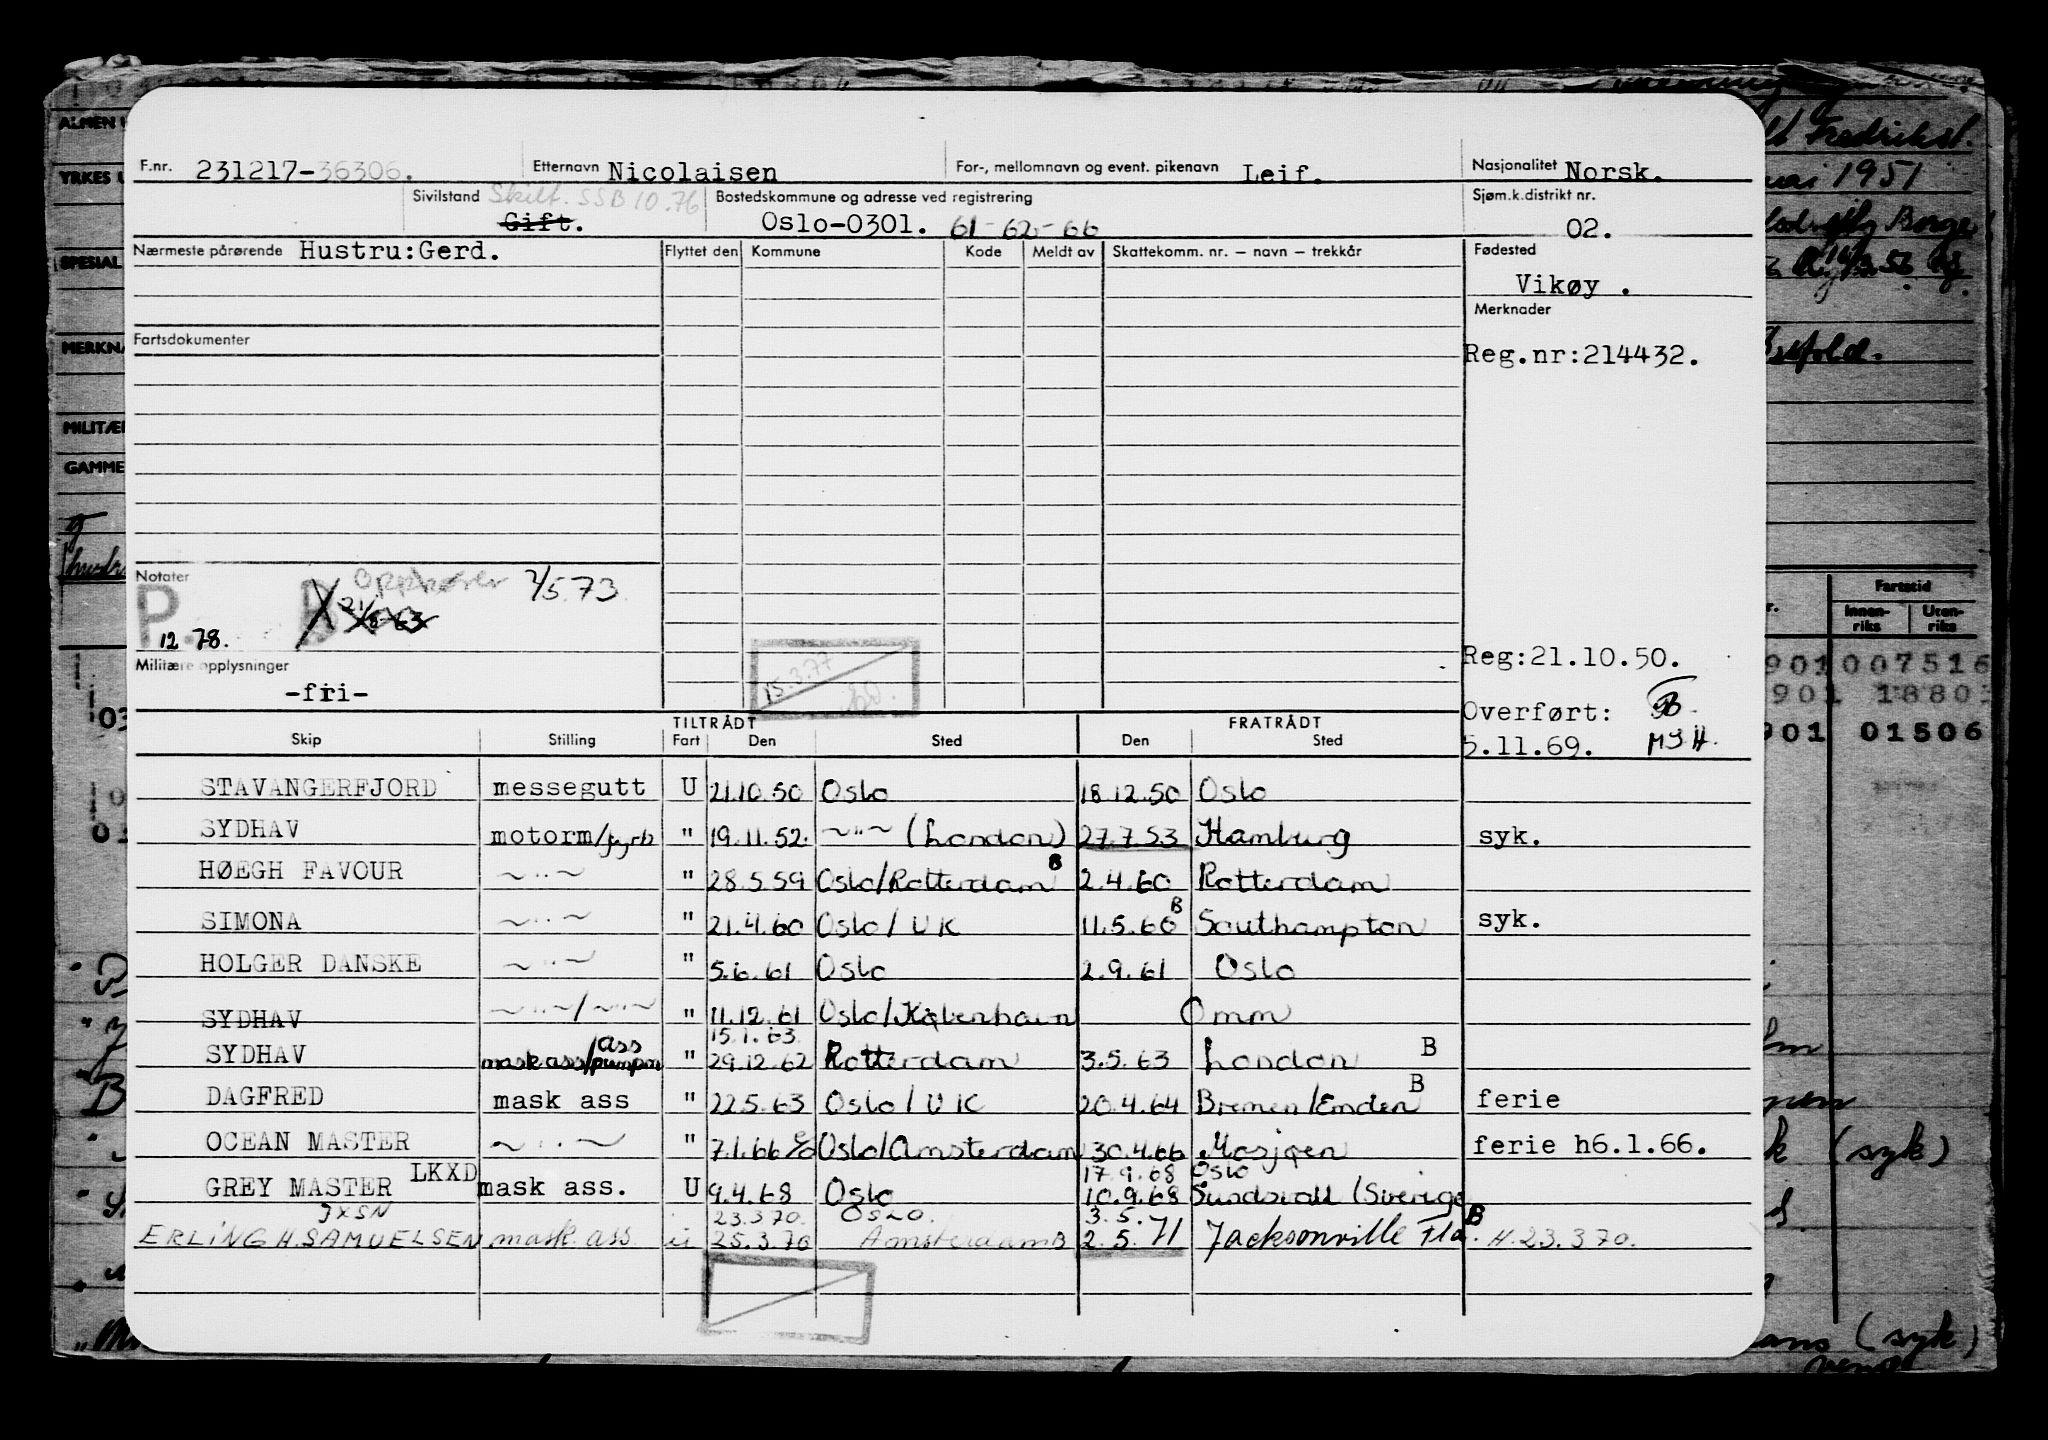 F.nr. 231217-36306. Etternavn Nicolaisen For-, mellomnavn og event. pikenavn Leif. Nasjonalitet Norsk.
Sivilstand Skilt. SSB 10.76 Bostedskommune og adresse ved registrering Sjøm.k.distrikt nr.
Gift. Oslo-0301. 61-62-66 02.
Nærmeste pårørende Hustru:Gerd. Flyttet den Kommune Kode Meldt av Skattekomm. nr. – navn – trekkår Fødested
Vikøy .
Merknader
Fartsdokumenter
Reg.nr:214432.
Notater
Opphører 2/5.73
P. 12.78. B 21/8 63
15.3.77
Militære opplysninger
-fri-
Reg:21.10.50.
Overført:
5.11.69. MSH.
TILTRÅDT FRATRÅDT
Skip Stilling Fart Den Sted Den Sted
STAVANGERFJORD messegutt U 21.10.50 Oslo 18.12.50 Oslo
SYDHAV motorm/fyrb " 19.11.52. ~"~ (London) 27.7.53 Hamburg syk.
HØEGH FAVOUR ~"~ " 28.5.59 Oslo/Rotterdam B 2.4.60 Rotterdam
SIMONA ~"~ " 21.4.60 Oslo/UK 11.5.60 B Southampton syk.
HOLGER DANSKE ~"~ " 5.6.61 Oslo 2.9.61 Oslo
SYDHAV ~"~/~"~ " 11.12.61 Oslo/København Omm
15.1.63
SYDHAV mask ass/ass pumpm " 29.12.62 Rotterdam 3.5.63 London B
DAGFRED mask ass " 22.5.63 Oslo/UK 20.4.64 Bremen/Emden B ferie
OCEAN MASTER ~"~ " 7.1.66 Oslo/Amsterdam 30.4.66 Mosjøen ferie h6.1.66.
17.9.68 Oslo
GREY MASTER LKXD mask ass. U 9.4.68 Oslo 10.9.68 Sundsvall (Sverige
JXSN 23.3.70. OSLO. 3.5.71
ERLING H. SAMUELSEN mask. ass. u 25.3.70 Amsterdam B 2.5.71 Jacksonville Fla. B H.23.3.70.
ALMEN
YRKES
SPESIAL
MERKNA
MILITÆR
GAMME
Fredrikst.
mai 1951
Borge
Østfold.
Fartstid
Innen-riks Uten-riks
901 007516
901 18803
901 01506
(syk)
(syk)